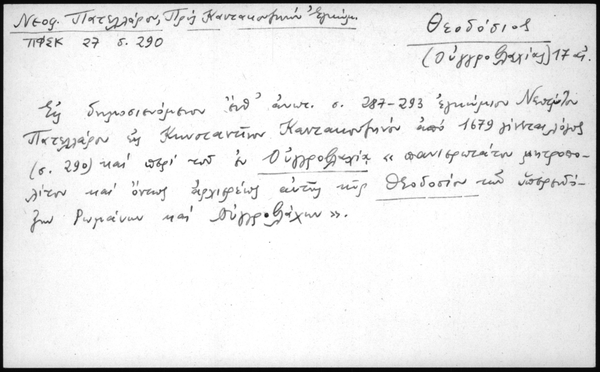 Νεοφ. Πατελλάρου, Πρὸς Καντακουζηνὸν Ἐγκώμ.
ΠΦΣΚ 27 σ. 290
Θεοδόσιος
(Οὐγγροβλαχίας) 17 αἰ.
Εἰς δημοσιευόμενον ἐνθ' ἀνωτ. σ. 287-293 ἐγκώμιον Νεοφύτου
Πατελλάρου εἰς Κωνσταντῖνον Καντακουζηνὸν ἀπὸ 1679 γίνεται λόγος
(σ. 290) καὶ περὶ τοῦ ἐν Οὐγγροβλαχίᾳ « πανιερωτάτου μητροπο-
λίτου καὶ ὄντως ἀρχιερέως αὐτῆς τῆς Θεοδοσίου τῶν ὑπερενδό-
ξων Ρωμάνων καὶ Οὐγγροβλάχων ».